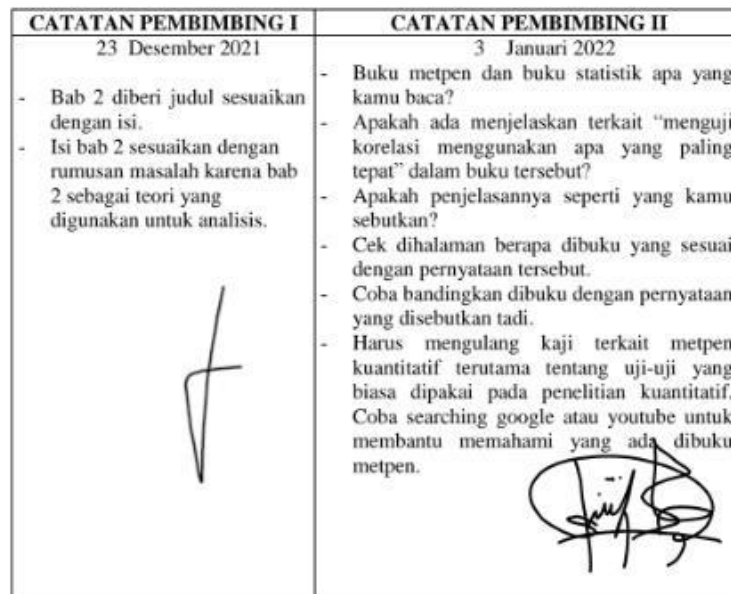 CATATAN PEMBIMBING I
23 Desember 2021
- Bab 2 diberi judul sesuaikan
dengan isi.
- Isi bab 2 sesuaikan dengan
rumusan masalah karena bab
2 sebagai teori yang
digunakan untuk analisis.
CATATAN PEMBIMBING II
3 Januari 2022
- Buku metpen dan buku statistik apa yang
kamu baca?
- Apakah ada menjelaskan terkait “menguji
korelasi menggunakan apa yang paling
tepat” dalam buku tersebut?
- Apakah penjelasannya seperti yang kamu
sebutkan?
- Cek dihalaman berapa dibuku yang sesuai
dengan pernyataan tersebut.
- Coba bandingkan dibuku dengan pernyataan
yang disebutkan tadi.
- Harus mengulang kaji terkait metpen
kuantitatif terutama tentang uji-uji yang
biasa dipakai pada penelitian kuantitatif.
Coba searching google atau youtube untuk
membantu memahami yang ada dibuku
metpen.